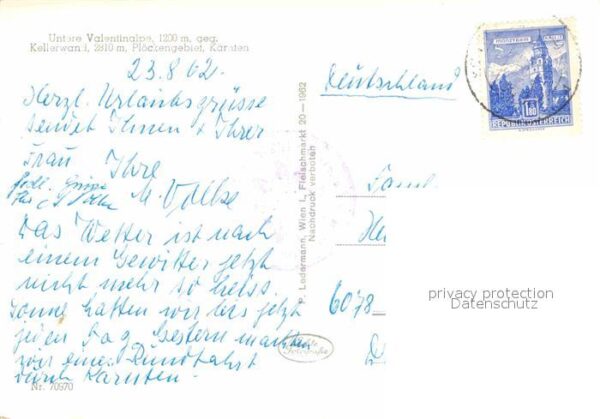 Untere Valentinalpe, 1200 m, geg.
Kellerwand, 2810 m, Plöckengebiet, Kärnten
23.8.62.
Herzl. Urlaubsgrüsse
sendet Ihnen + Ihrer
Frau Ihre
M. Volke
Das Wetter ist nach
einem Gewitter jetzt
nicht mehr so heiss.
Sonne hatten wir bis jetzt
jeden Tag. Gestern machten
wir eine Rundfahrt
durch Kärnten.
Nr. 70970
P. Ledermann, Wien I., Fleischmarkt 20 — 1962
Nachdruck verboten
Echte
Fotografie
Deutschland
1.80
REPUBLIK ÖSTERREICH
Fam.
He
6078
privacy protection
Datenschutz